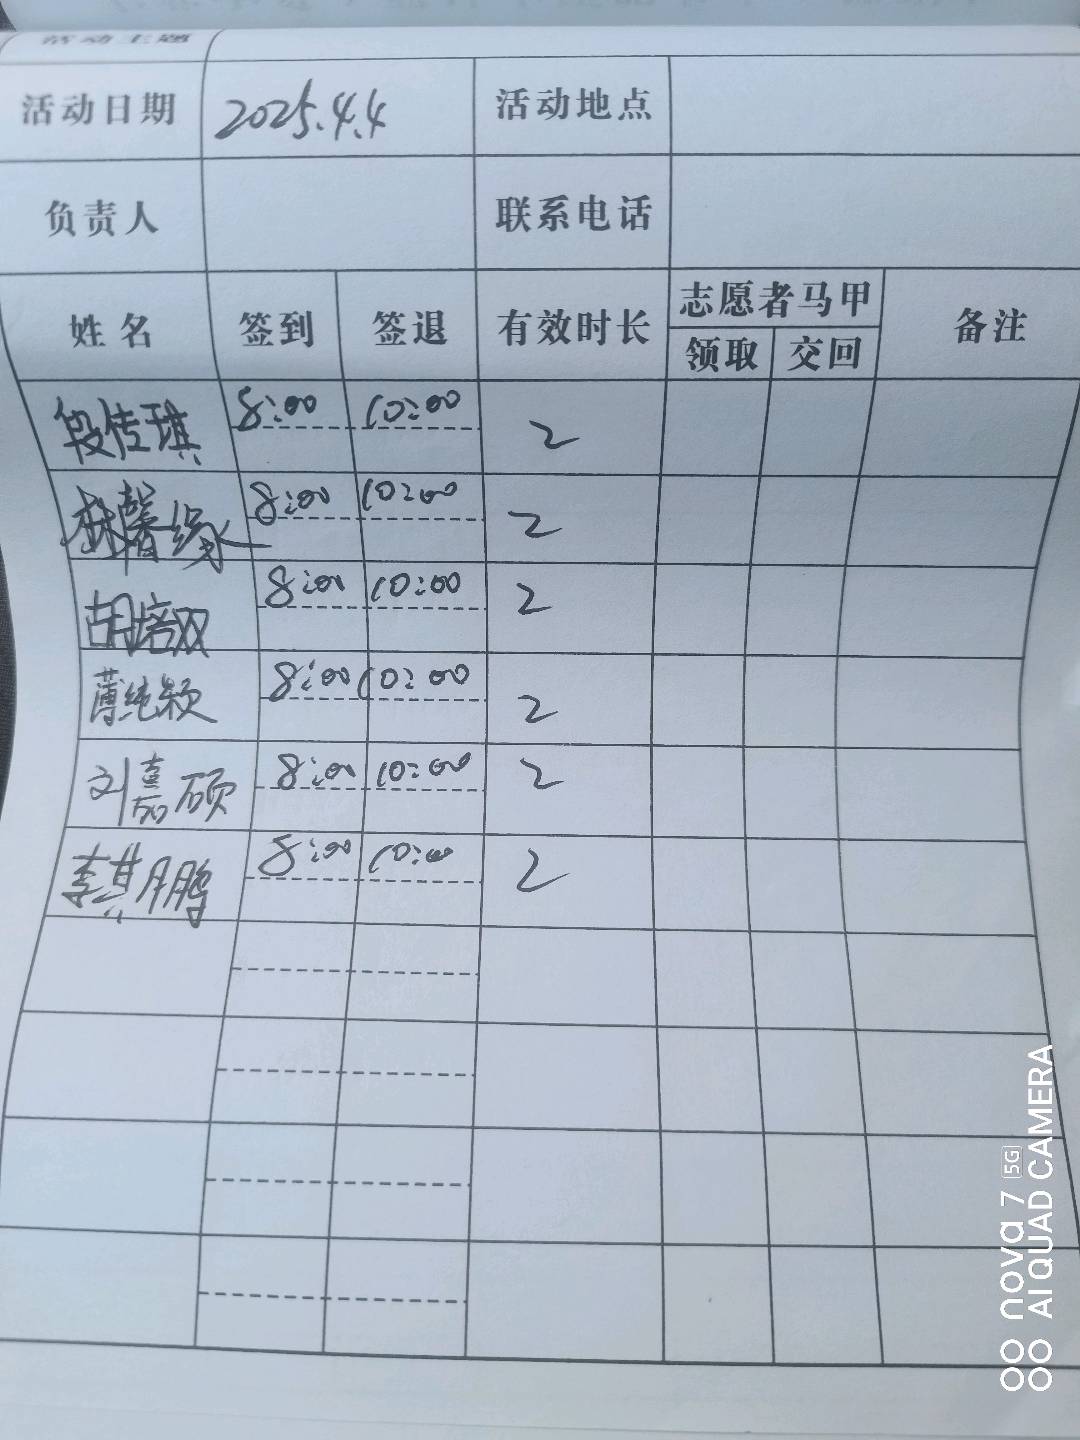 活动主题
活动日期 2025.4.4 活动地点
负责人 联系电话
姓名 签到 签退 有效时长 志愿者马甲 备注
领取 交回
段传琪 8:00 10:00 2
林馨缘 8:00 10:00 2
胡培双 8:00 10:00 2
薄纯颖 8:00 10:00 2
刘嘉硕 8:00 10:00 2
李其鹏 8:00 10:00 2
nova 7 5G
AI QUAD CAMERA